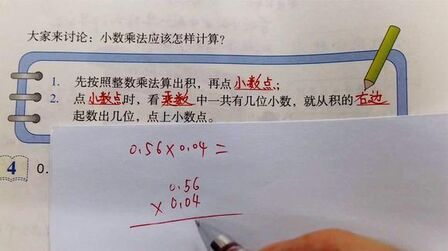 大家来讨论：小数乘法应该怎样计算？
1. 先按照整数乘法算出积，再点小数点；
2. 点小数点时，看乘数中一共有几位小数，就从积的右边
起数出几位，点上小数点。
4 0.
0.56×0.04=
0.56
×0.04